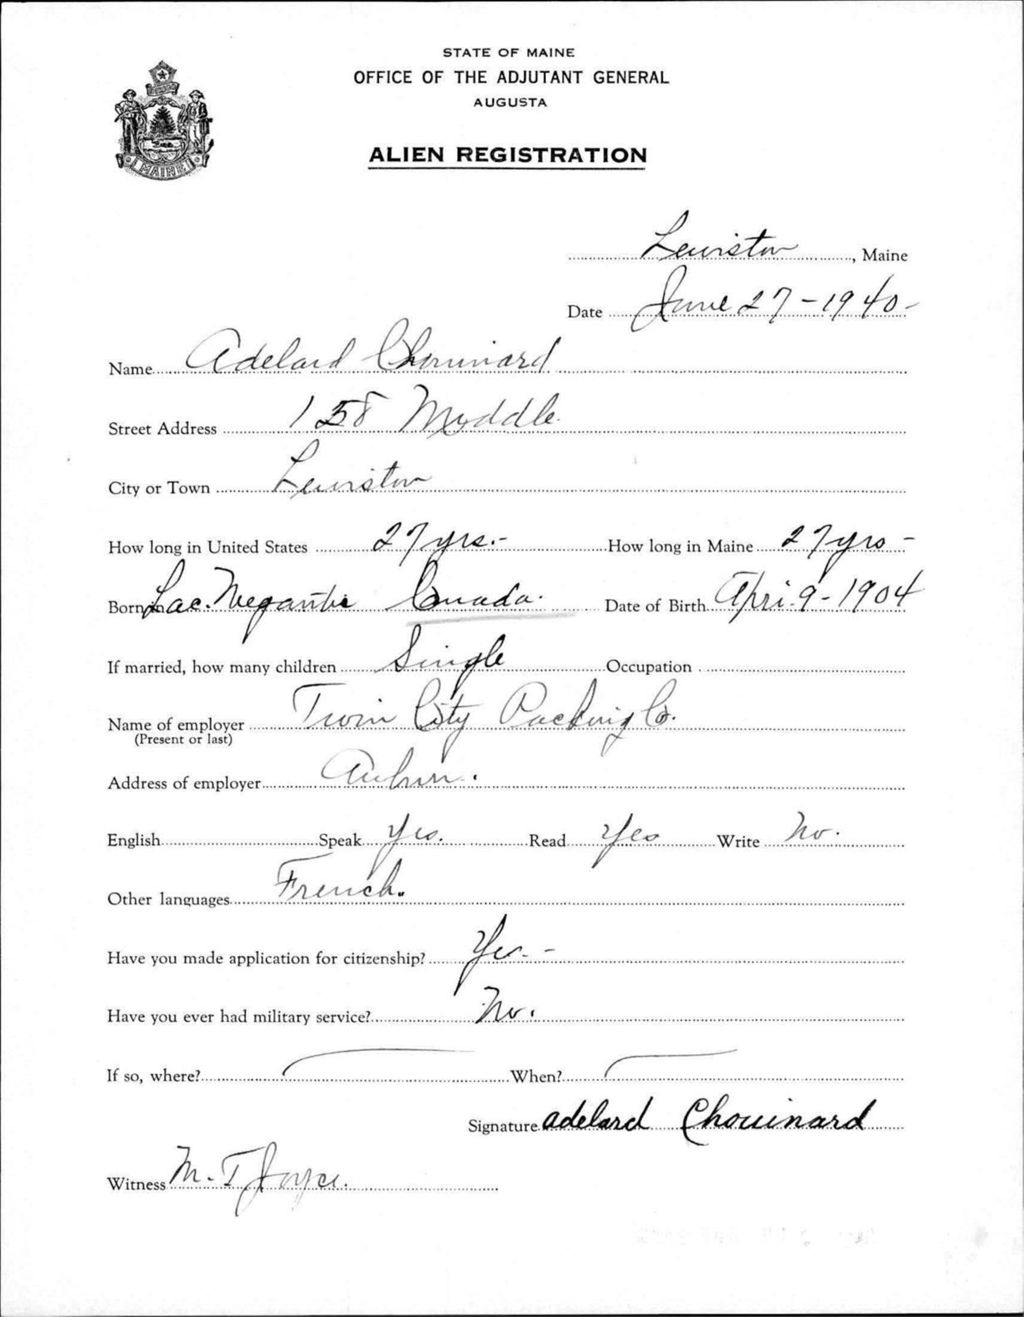 STATE OF MAINE
OFFICE OF THE ADJUTANT GENERAL
AUGUSTA
ALIEN REGISTRATION
MAINE
Lewiston, Maine
Date June 27-1940-
Name Adelard Chouinard
Street Address 158 Myddle
City or Town Lewiston
How long in United States 27 yrs.- How long in Maine 27 yrs-
Born in Lac. Megantic Canada. Date of Birth Apri. 9-1904
If married, how many children Single Occupation
Name of employer Twin City Packing Co.
(Present or last)
Address of employer Auburn.
English Speak Yes. Read Yes Write No.
Other languages French.
Have you made application for citizenship? Yes.-
Have you ever had military service? No.
If so, where? When?
Signature adelard Chouinard
Witness M. T Joyce.